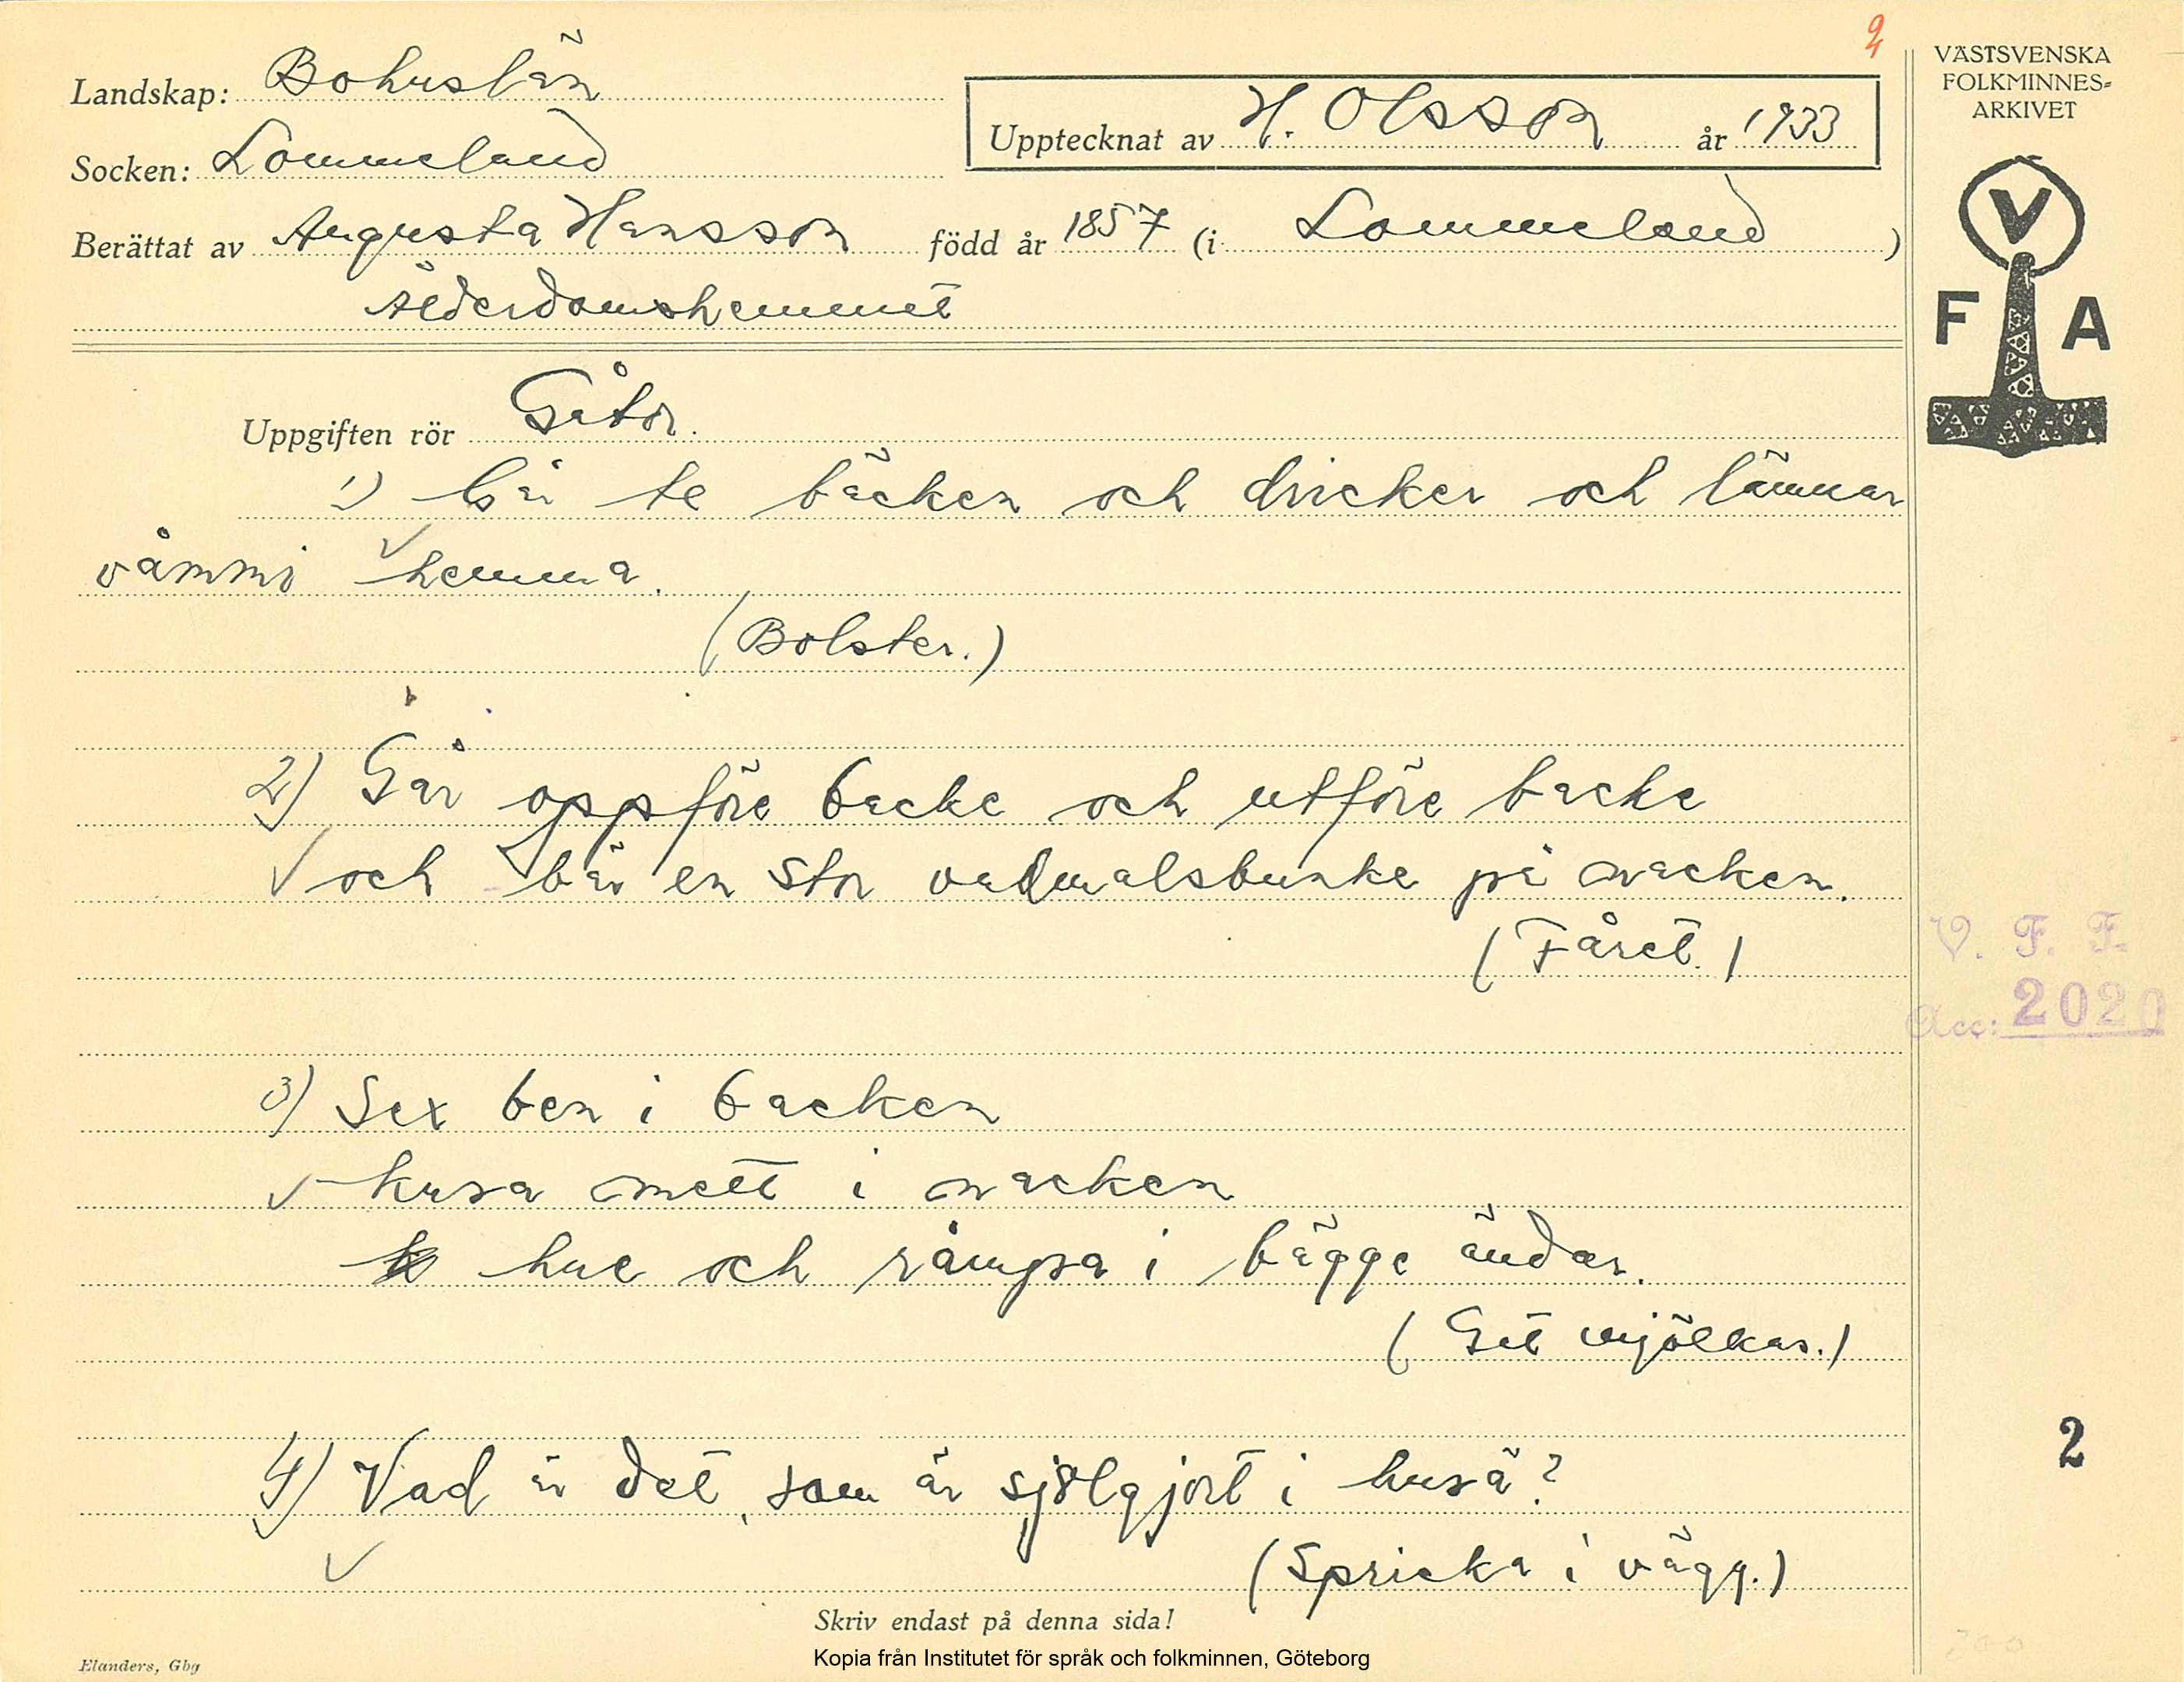 2
Landskap: Bohuslän
Upptecknat av H. Olsson år 1933
Socken: Lommeland
Berättat av Augusta Hansson född år 1857 (i Lommeland)
Ålderdomshemmet
VÄSTSVENSKA
FOLKMINNES-
ARKIVET
V
F A
Uppgiften rör Gåtor.
1) Går te bäcken och dricker och lämnar
våmmi hemma.
(Bolster.)
2) Går oppföre backe och utföre backe
och bär en stor vadmalsbunke på nacken.
(Fåret.)
V. F. F.
Acc: 2020
3) Sex ben i backen
kusa mett i nacken
hue och råmpa i bägge ändar.
(Get mjölkas.)
4) Vad är det, som är sjölgjort i huså?
(Spricka i vägg.)
2
Skriv endast på denna sida!
Kopia från Institutet för språk och folkminnen, Göteborg
Elanders, Gbg